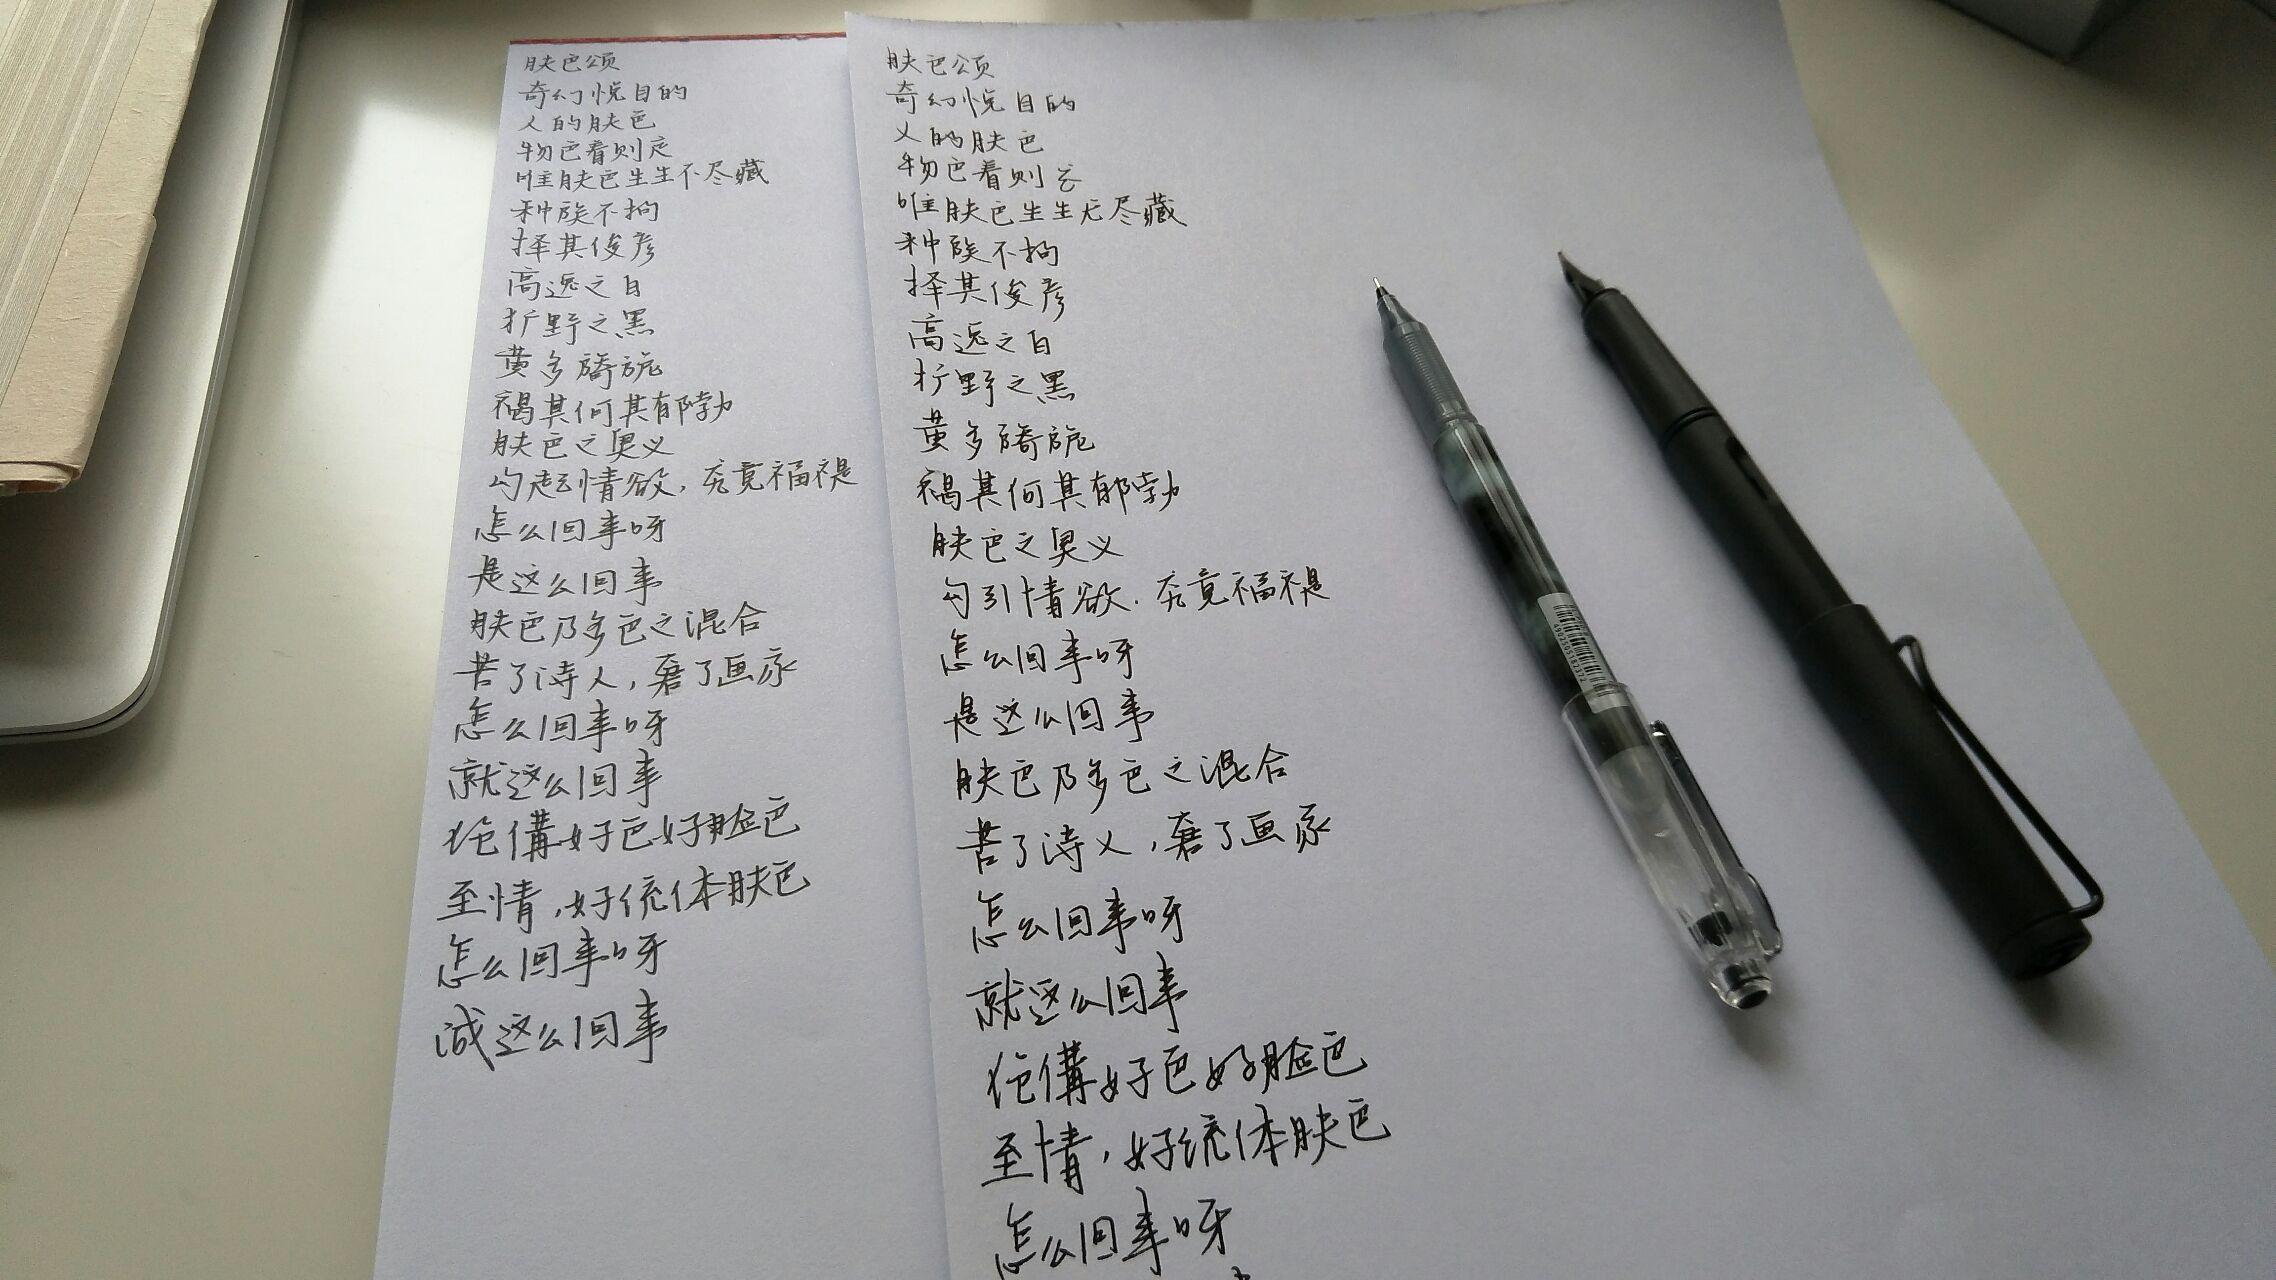 肤色颂
奇幻悦目的
人的肤色
物色看则定
唯肤色生生不尽藏
种族不拘
择其俊彦
高逸之白
犷野之黑
黄多旖旎
褐其何其郁勃
肤色之奥义
勾起情欲，究竟福褆
怎么回事呀
是这么回事
肤色乃多色之混合
苦了诗人，磨了画家
怎么回事呀
就这么回事
佗傋好色好脸色
至情，好统体肤色
怎么回事呀
诚这么回事
肤色颂
奇幻悦目的
人的肤色
物色看则
唯肤色生生无尽藏
种族不拘
择其俊彦
高逸之白
犷野之黑
黄多旖旎
褐其何其郁勃
肤色之奥义
勾引情欲，究竟福褆
怎么回事呀
是这么回事
肤色乃多色之混合
苦了诗人，磨了画家
怎么回事呀
就这么回事
佗傋好色好脸色
至情，好统体肤色
怎么回事呀
4902505182372